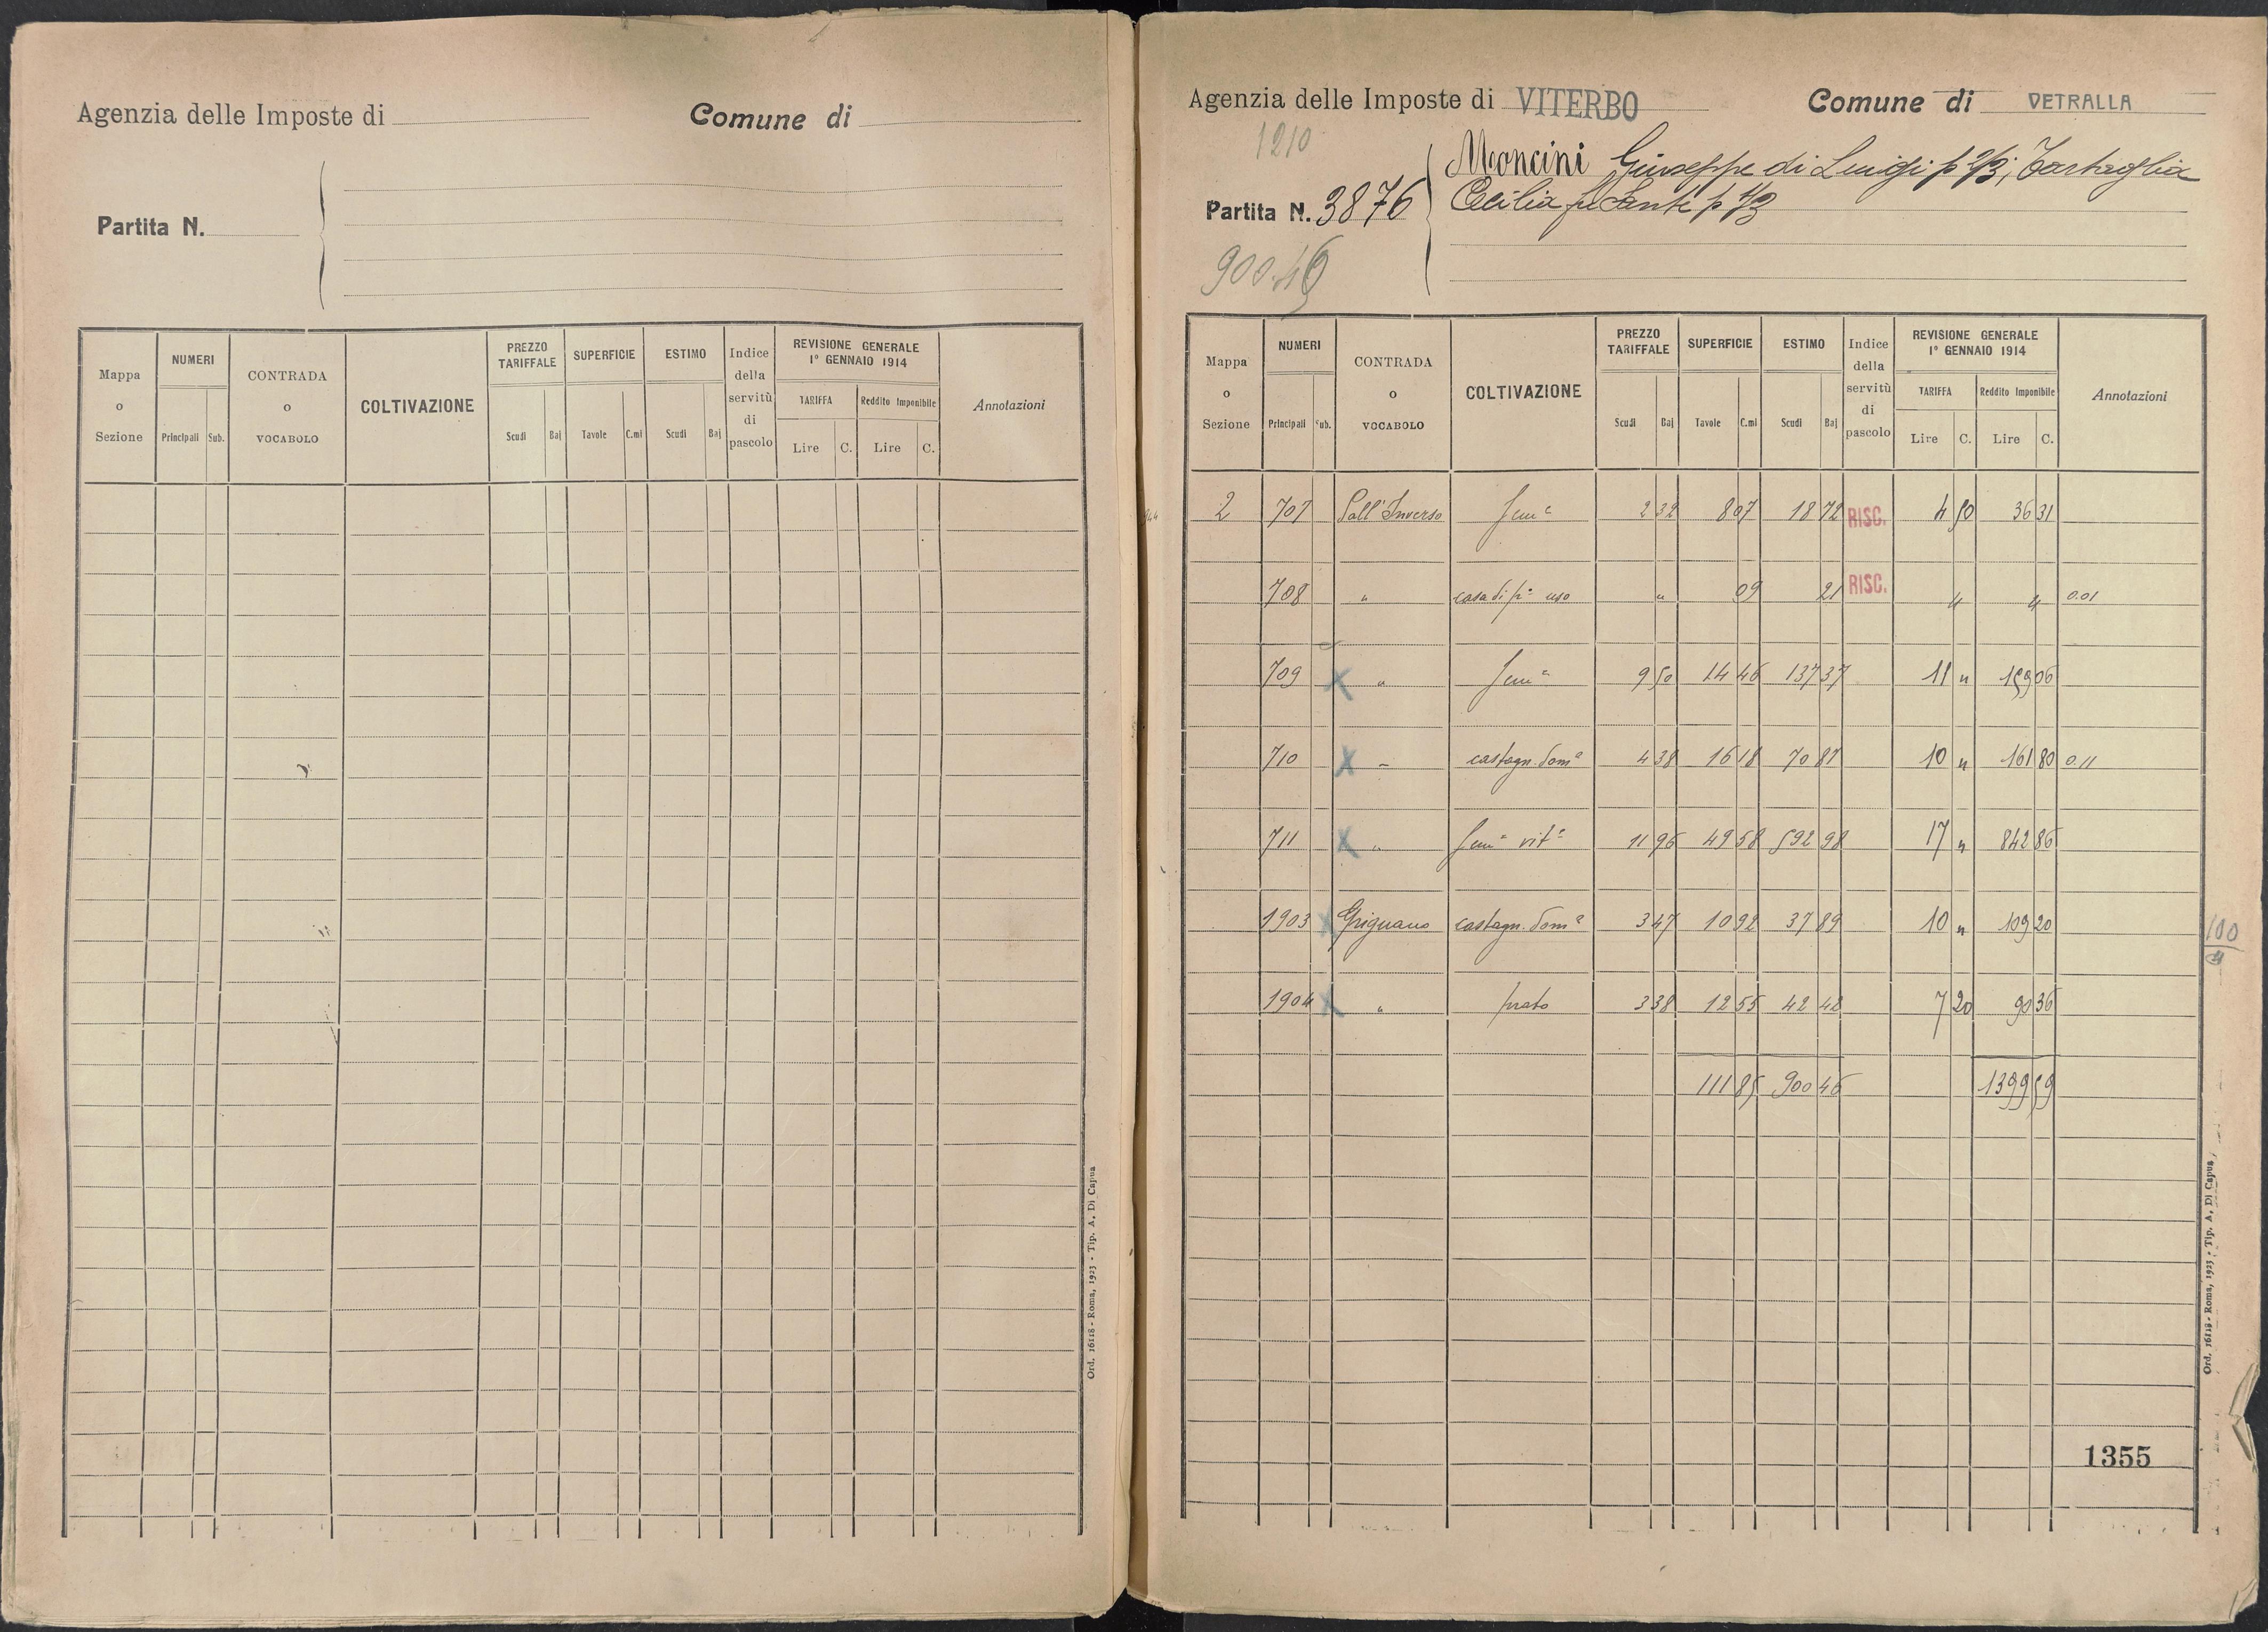 Agenzia delle Imposte di
Comune di
Partita N.
Mappa o Sezione
NUMERI
Principali Sub.
CONTRADA o VOCABOLO
COLTIVAZIONE
PREZZO TARIFFALE
Scudi Baj
SUPERFICIE
Tavole C.mi
ESTIMO
Scudi Baj
Indice della servitù di pascolo
REVISIONE GENERALE
1º GENNAIO 1914
TARIFFA Reddito Imponibile
Lire C. Lire C.
Annotazioni
Ord. 16118 - Roma, 1923 - Tip. A. Di Capua
Agenzia delle Imposte di VITERBO
Comune di VETRALLA
1210
Partita N. 3876
Mancini Giuseppe di Luigi p 2/3; Tartaglia
Cecilia fu Sante p 1/3
900.46
Mappa o Sezione
NUMERI
Principali Sub.
CONTRADA o VOCABOLO
COLTIVAZIONE
PREZZO TARIFFALE
Scudi Baj
SUPERFICIE
Tavole C.mi
ESTIMO
Scudi Baj
Indice della servitù di pascolo
REVISIONE GENERALE
1º GENNAIO 1914
TARIFFA Reddito Imponibile
Lire C. Lire C.
Annotazioni
2 707 Sem.e 2 32 8 07 18 72 RISC. 4 50 36 31
708 " casa di p.o uso " 09 21 RISC. " " 0.01
709 X " Sem.e 9 50 14 46 137 37 11 " 159 06
710 X " castagn. dom.e 4 38 16 18 70 87 10 " 161 80 0.11
711 X " Sem.e vit.o 11 96 49 58 592 98 17 " 842 86
1903 X Grignano castagn. dom.e 3 47 10 92 37 89 10 " 109 20
1904 X " prato 3 38 12 55 42 42 7 20 90 36
111 85 900 46 1399 59
100
1355
Ord. 16118 - Roma, 1923 - Tip. A. Di Capua